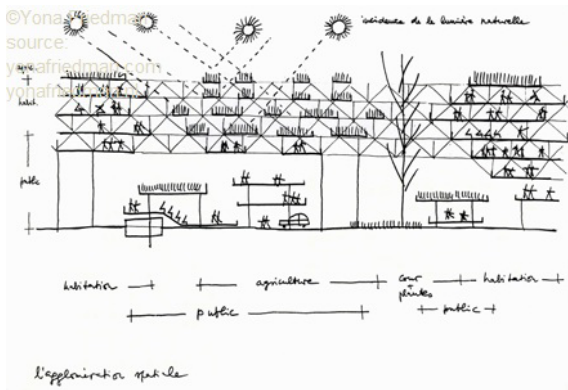 ©Yona Friedman
source:
yonafriedman.com
incidence de la lumière naturelle
agric.
habit.
public
habitation
agriculture
cour
plantes
habitation
public
public
l'agglomération spatiale